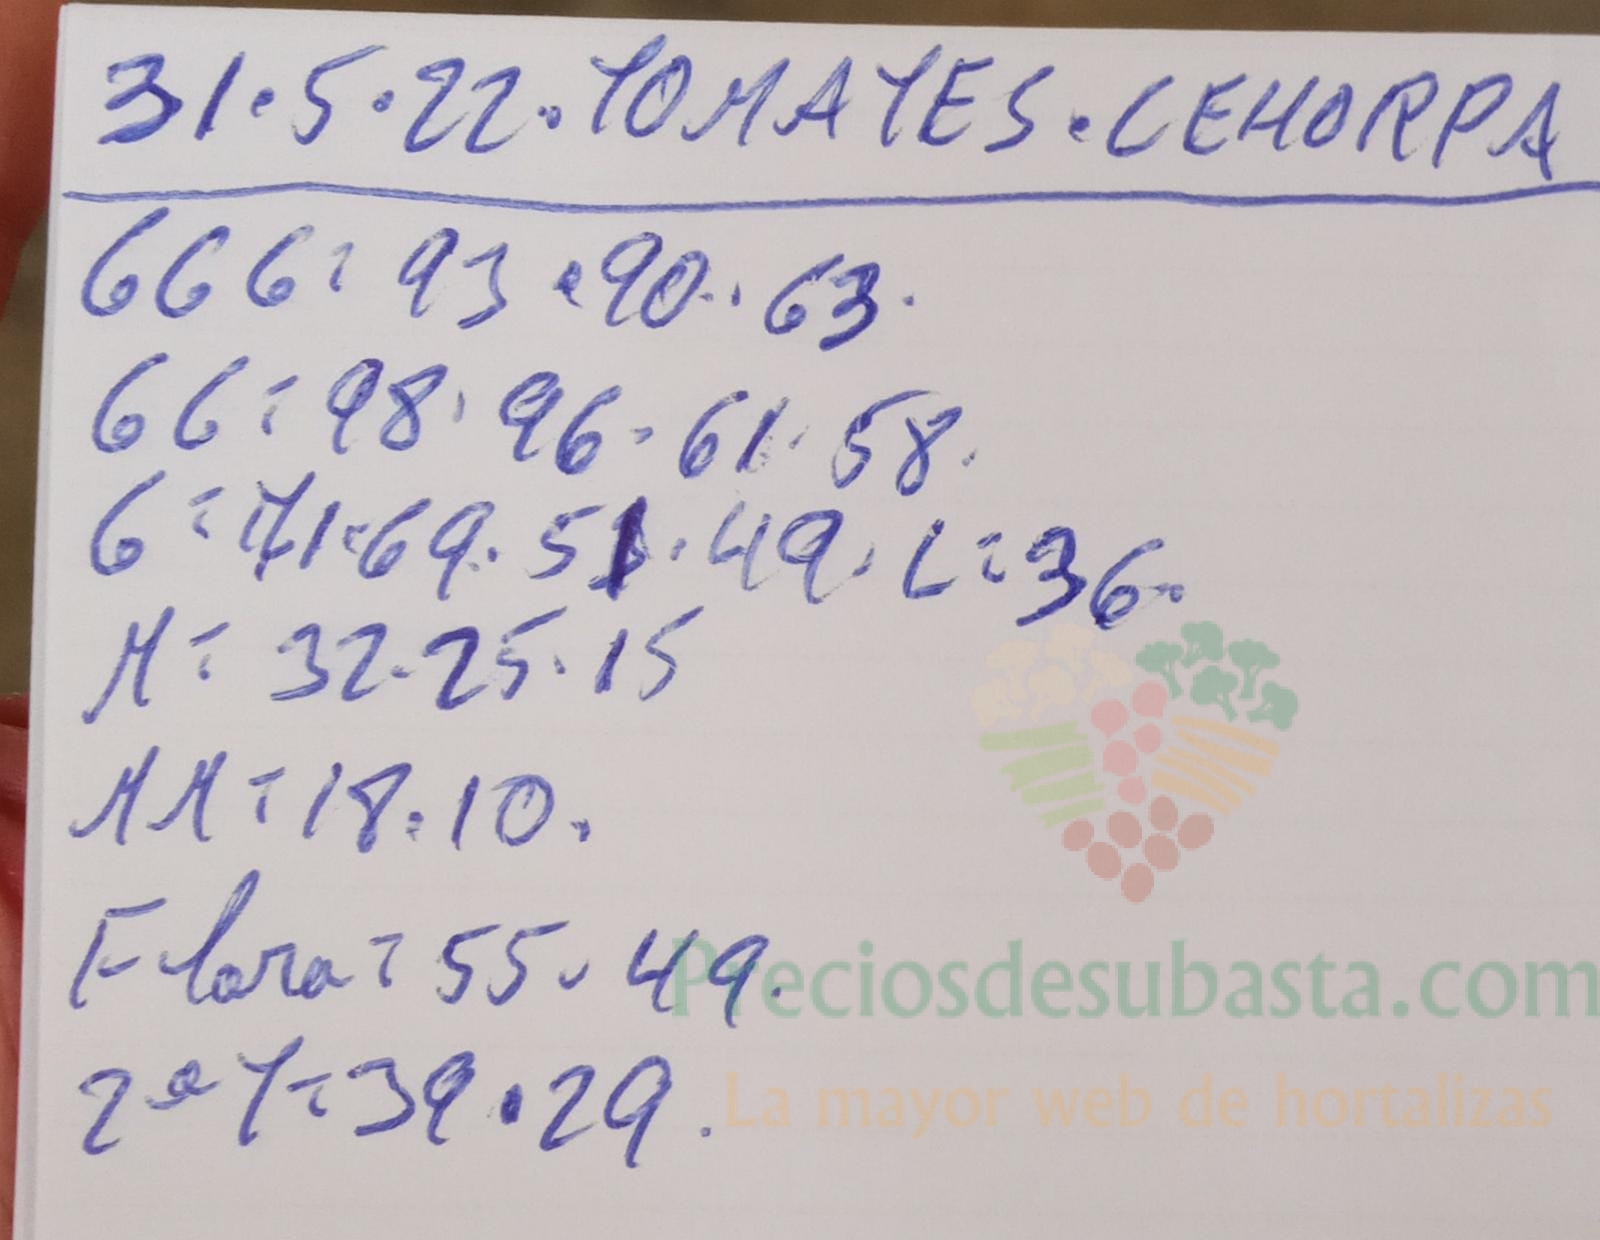 31.5.22.TOMATES.CEHORPA
GGG: 93.90.63.
GG: 98.96.61.58.
G: 71.69.51.49. C: 36.
M: 32.25.15
MM: 18.10.
Flora: 55.49.
2ª T: 39.29.
Preciosdesubasta.com
La mayor web de hortalizas